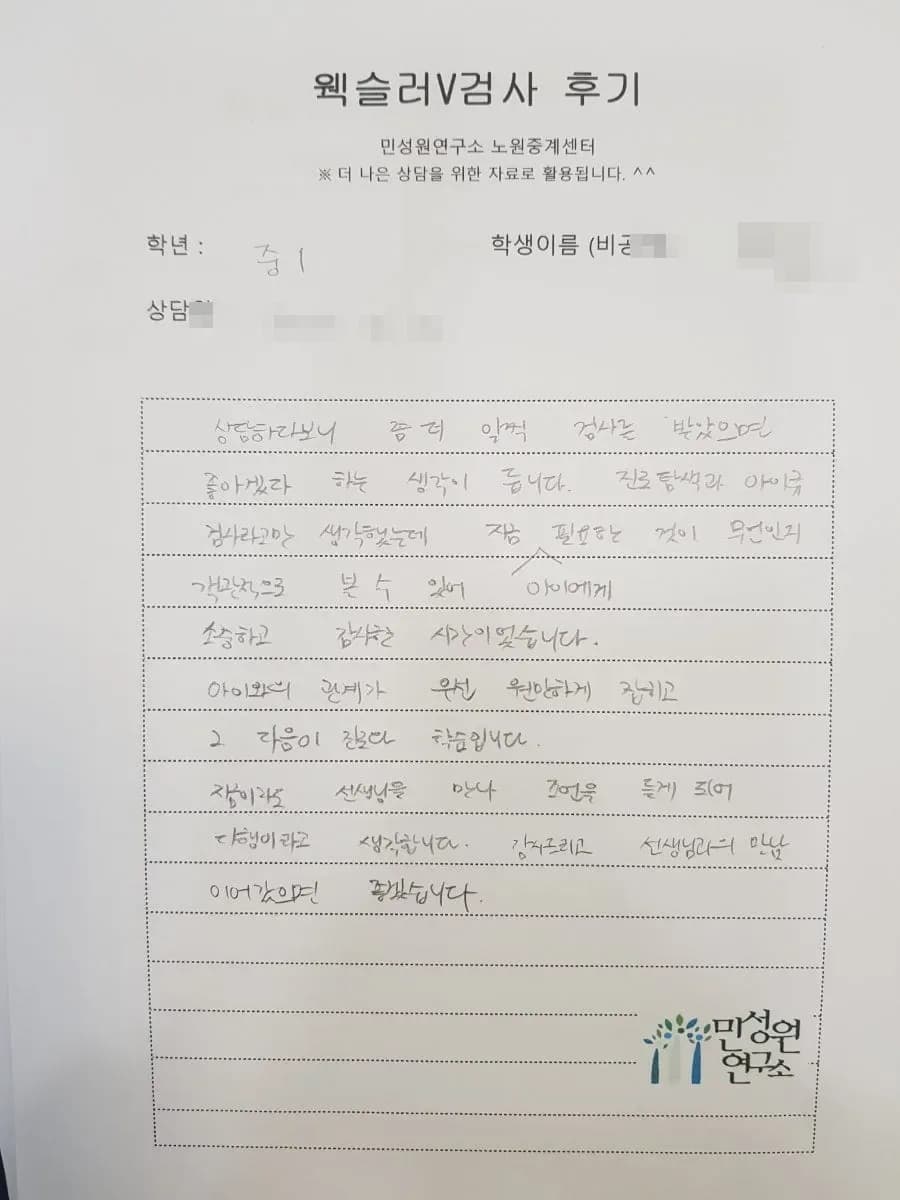 웩슬러V검사 후기
민성원연구소 노원중계센터
※ 더 나은 상담을 위한 자료로 활용됩니다. ^^
학년 : 중1 학생이름 (비공
상담
상담하다보니 좀 더 일찍 검사를 받았으면
좋아겠다 하는 생각이 듭니다. 진로탐색과 아이큐
검사라고만 생각했는데 지금 필요한 것이 무언인지
객관적으로 본 수 있어 아이에게
소중하고 감사한 시간이었습니다.
아이와의 관계가 우선 원만하게 잡히고
그 다음이 진로다 학습입니다.
지금이라도 선생님을 만나 조언을 듣게 되어
다행이라고 생각합니다. 감사드리고 선생님과의 만남
이어갔으면 좋겠습니다.
민성원
연구소